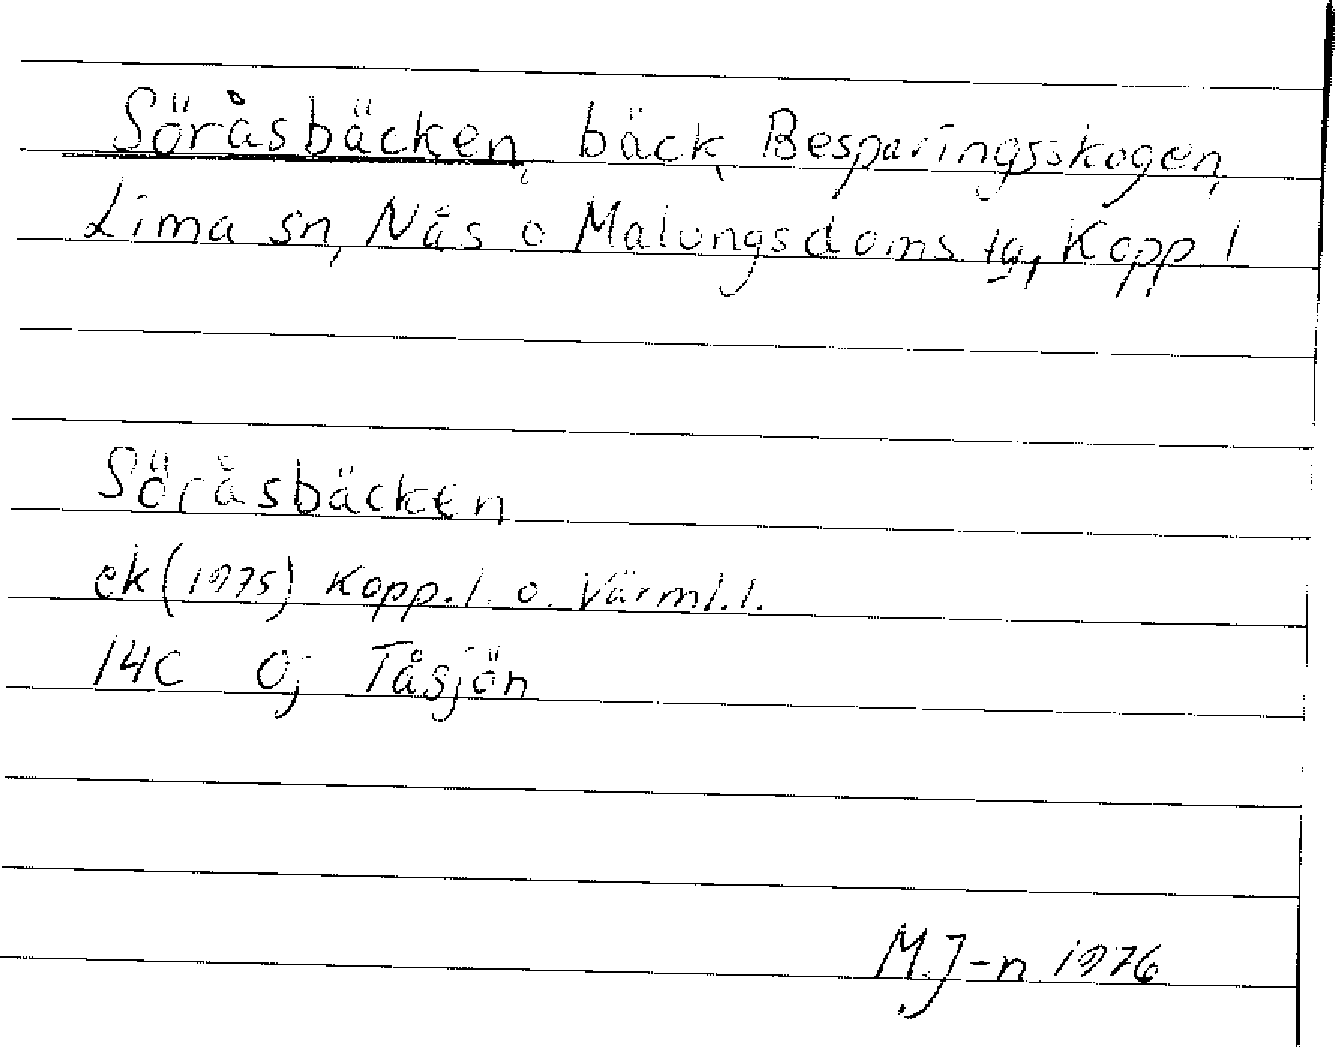 Söråsbäcken, bäck, Besparingsskogen,
Lima sn, Nås o Malungsdoms tg, Kopp l
Söråsbäcken
ek (1975) Kopp. l. o. Värml. l.
14C 0j Tåsjön
M. J-n 1976